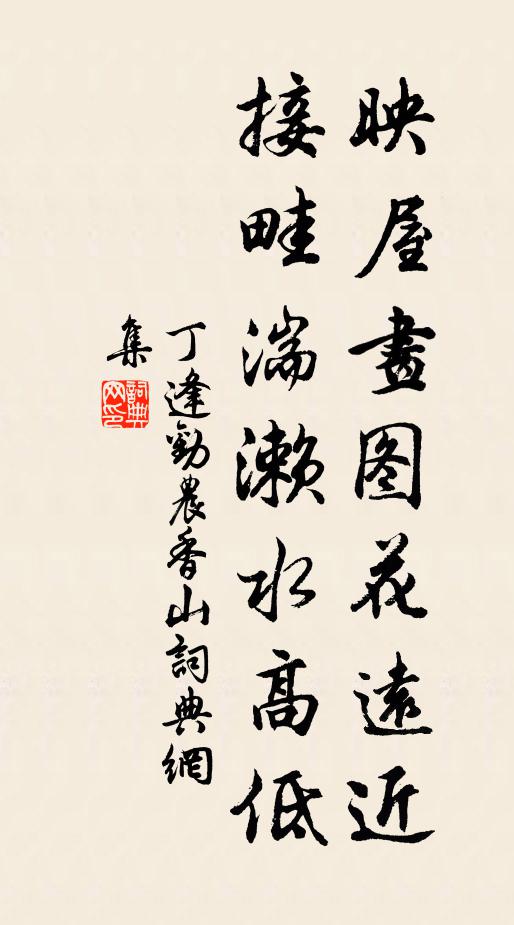 映屋畫图花遠近
接畦湍瀨水高低
丁逢勸農香山詞典網
集
詞典网印